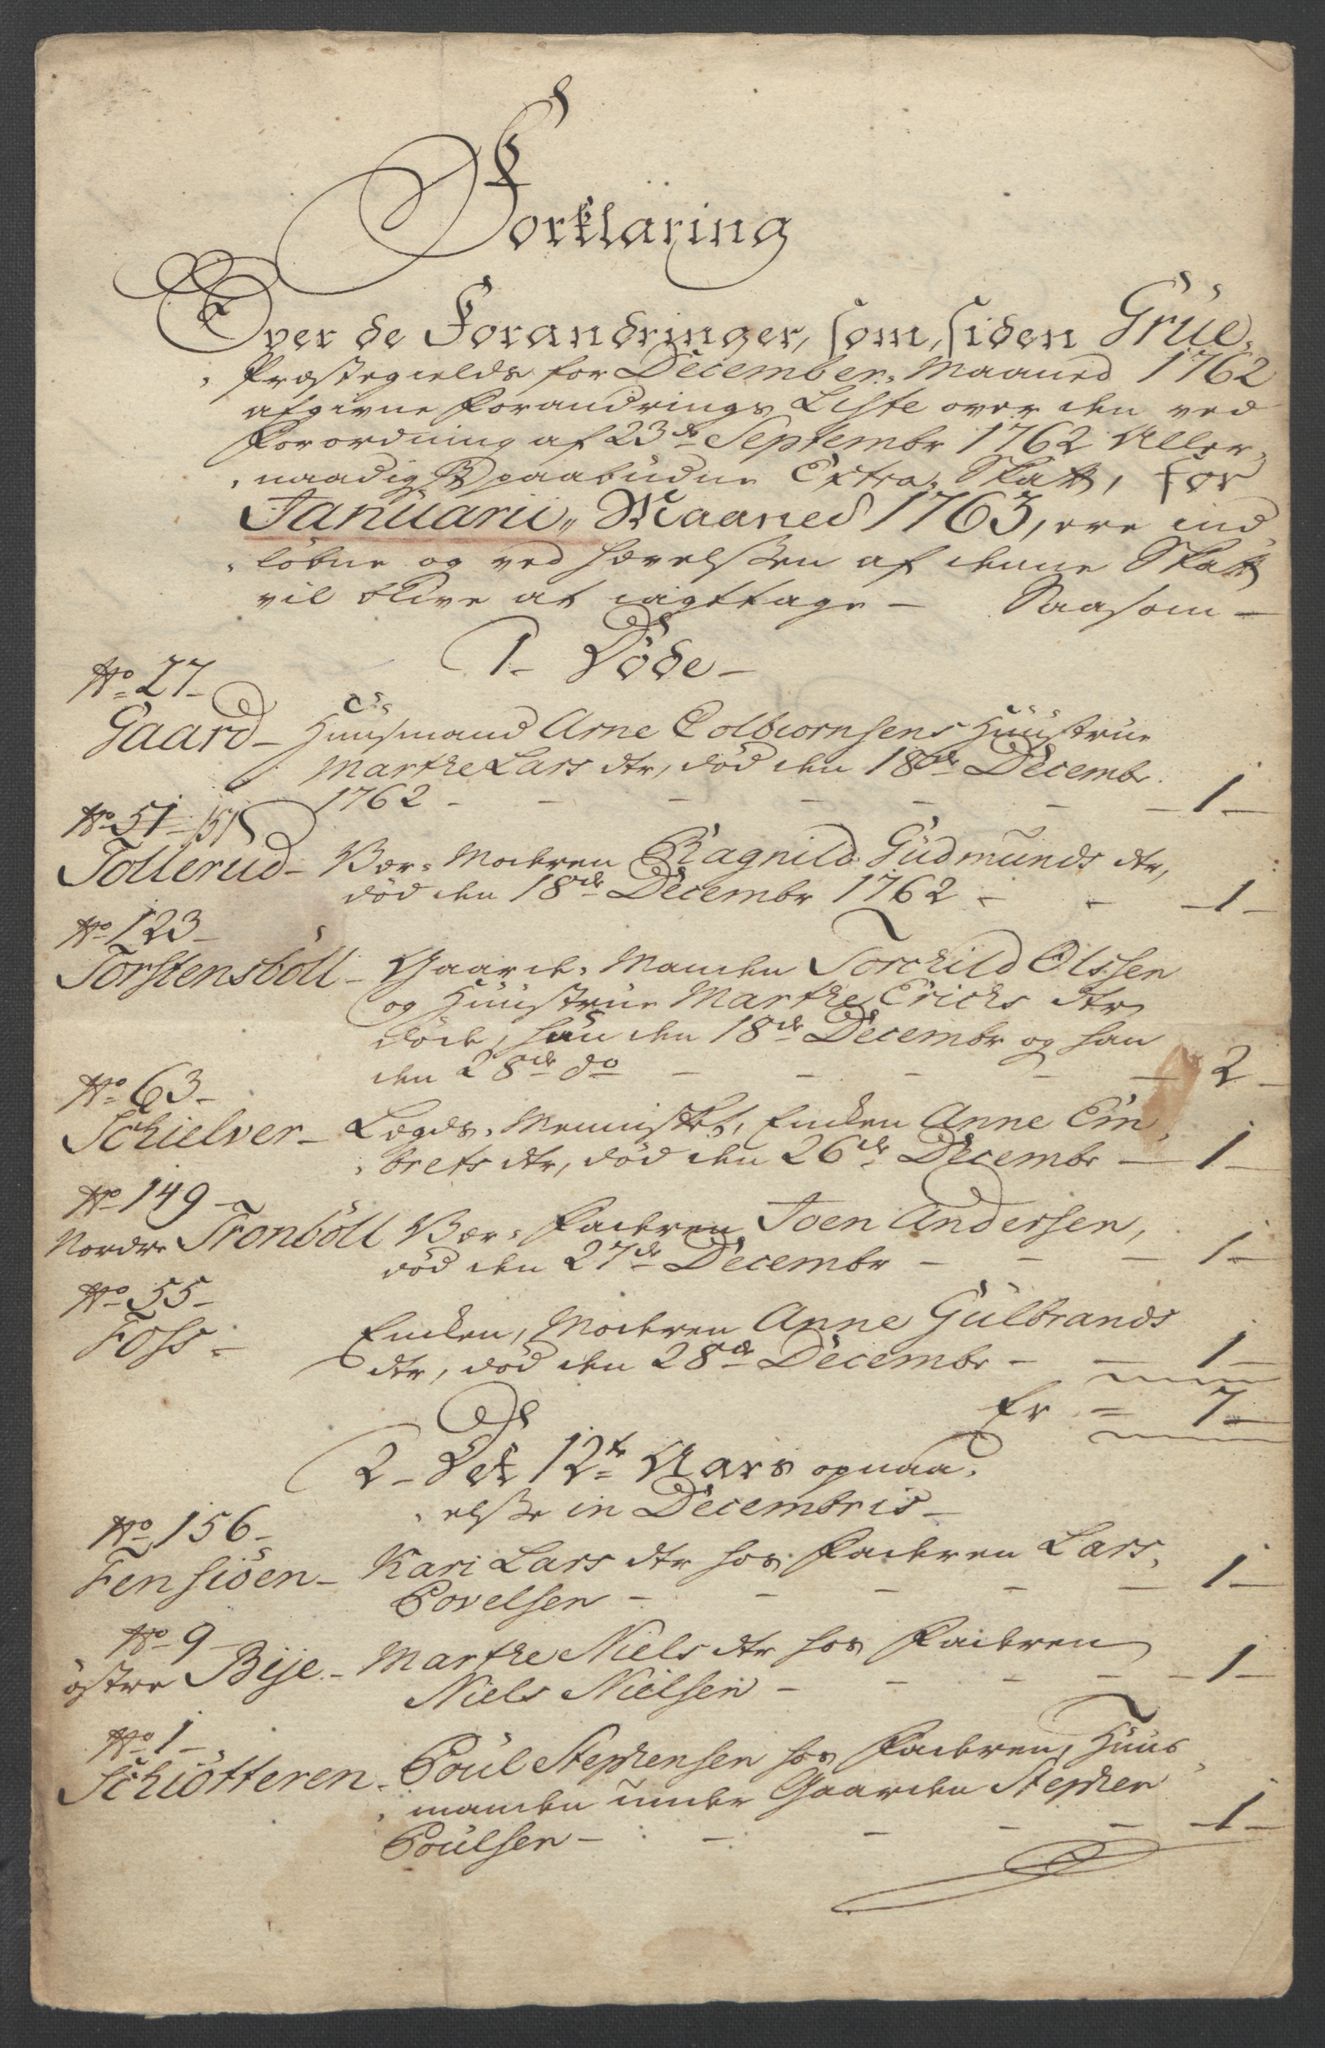 Forklaring
Over de Forandringer, som, siden Grue,
Præstegields for December, Maaned 1762
afgivne Forandrings Liste over den ved
Forordning af 23de Septembr 1762 Aller,
naadigst paabudne Extra, Skatt, for
Januarii, Maaned 1763, ere ind
løbne og ved Hævelssen af denne Skatt
vil blive at iagttage — Saasom —
1 — Døde —
No 27 —
Gaard — Huusmand Arne Colbiornsens Huustrue
Marthe Lars dtr, død den 18de Decembr
1762 — 1 —
No 51 — /51
Tollerud — Vær, Moderen Ragnild Gudmunds dtr,
død den 18de Decembr 1762 — 1 —
No 123 —
Torstensböll — Gaard, Manden Torchild Olssen
og Huustrue Marthe Erichs dtr
døde, hun den 18de Decembr og han
den 28de do — 2 —
No 63 —
Schielver — Lægds, Mennisket, Enken Anne Em,
brets dtr, død den 26de Decembr — 1 —
No 149 —
Nordre Tronböll Vær, Faderen Joen Andersen,
død den 27de Decembr — 1 —
No 55 —
Foss — Enken, Moderen Anne Gulbrands
dtr, død den 28de Decembr — 1 —
Er = 7 —
2 — Det 12te Aars opnaa,
elsse in Decembris —
No 156 —
Fensiöen — Kari Lars dtr hos Faderen Lars
Povelsen — 1 —
No 9 —
östre Bije — Marthe Niels dtr hos Faderen
Niels Nielsen — 1 —
No 1 —
Schiötteren — Poul Stephensen hos Faderen, Huus
manden under Gaarden Stephen
Poulsen — 1 —